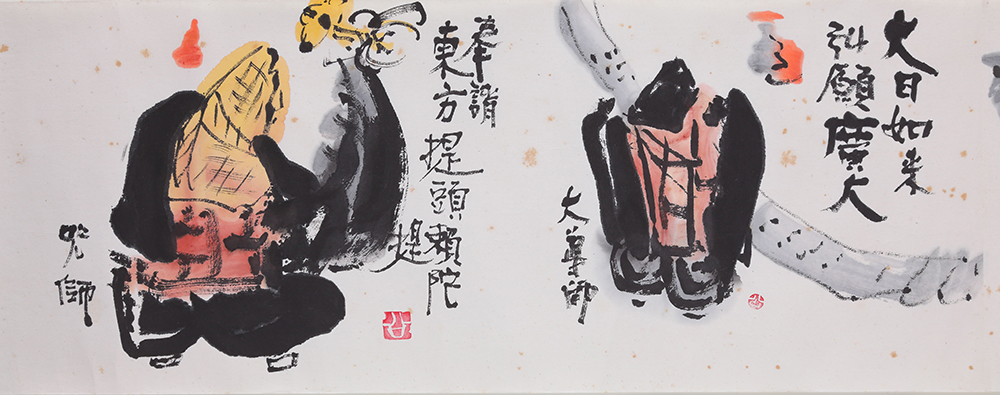 大日如来
弘願廣大
大導師
奉請
東方提頭頼陀
提
咒師